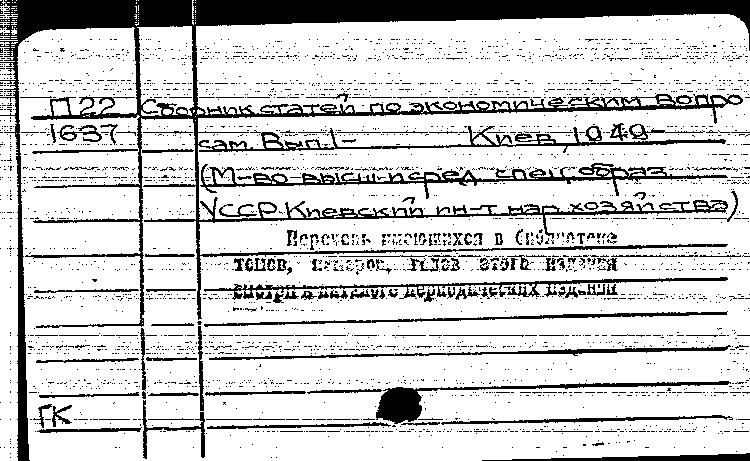 П22 Сборник статей по экономическим вопро
1637 сам. Вып. 1- Киев, 1949-
(М-во высш. и сред. спец. образ.
УССР. Киевский ин-т нар. хозяйства)
Перечень имеющихся в библиотеке
томов, номеров, годов этого издания
смотри в каталоге периодических изданий
ГК